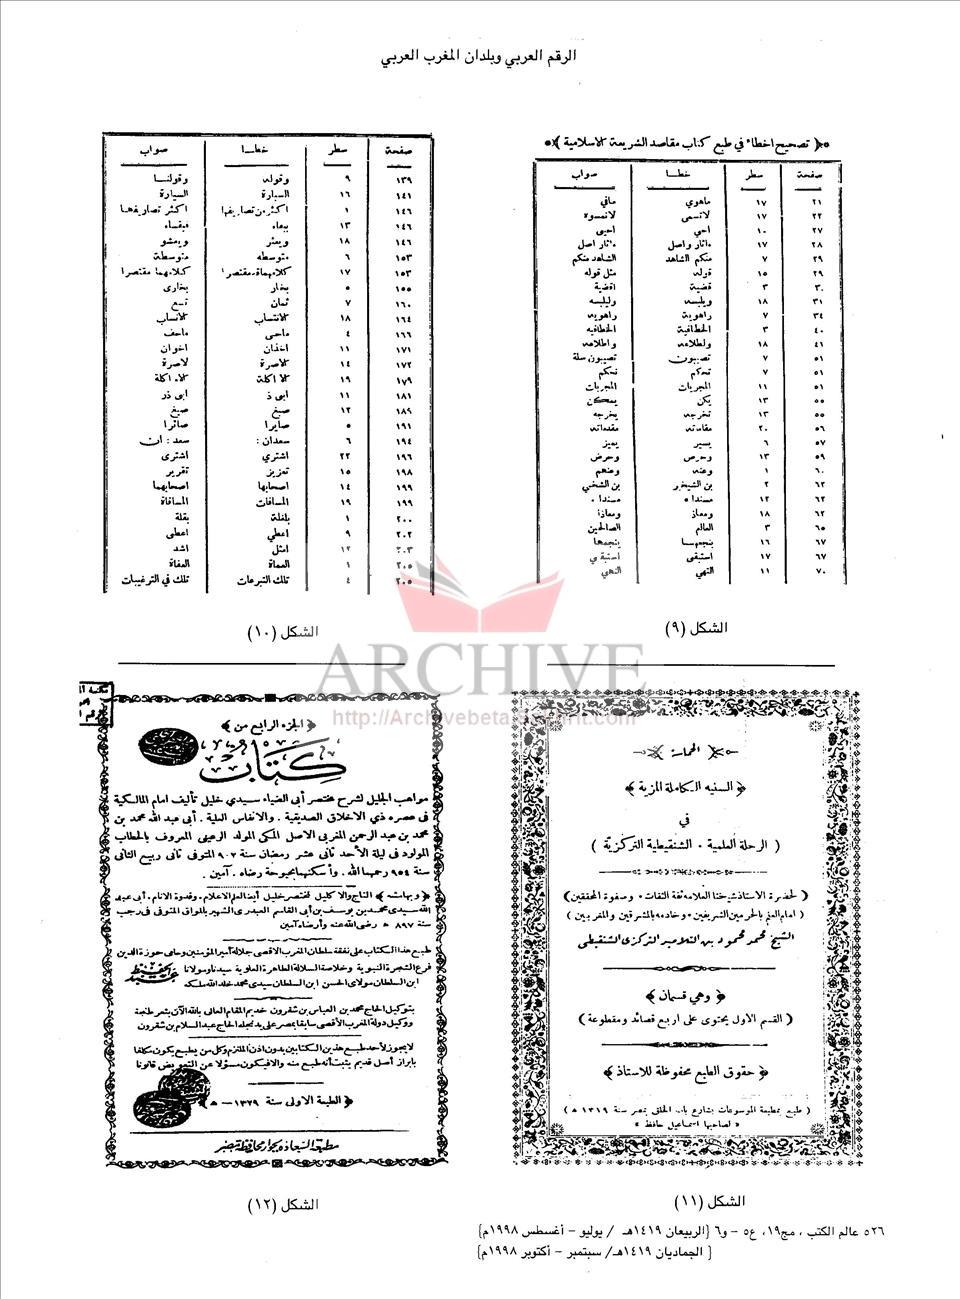 الرقم العربي وبلدان المغرب العربي
﴿ تصحيح اخطاء في طبع كتاب مقاصد الشريعة الاسلامية ﴾
صفحة سطر خطـا صواب
٢١ ١٧ ماهوي مافي
٢٢ ١٧ لاتسمى لاتمسوه
٢٧ ١٠ احي احيى
٢٨ ١٧ ءاثار واصل ءاثار اصل
٢٩ ٧ منكم الشاهد الشاهد منكم
٢٩ ١٥ قوله مثل قوله
٣٠ ٣ قضية اقضية
٣١ ١٨ ويلبسه وليلبسه
٣٤ ٧ راهوية راهويه
٤٠ ٣ الخطافية الخطافيه
٤١ ١٨ ولطلامه واطلامه
٥١ ٧ تصيبون تصيبون سلة
٥١ ٧ تحكم نحكم
٥١ ١١ المجريات المجربات
٥٥ ١٣ يكن يمكن
٥٥ ١٣ تخرجه يخرجه
٥٦ ٢٠ مقامته مقدماته
٥٧ ٦ يسير يميز
٥٩ ١٣ وحرص وحرض
٦٠ ١ وعنه وعنهم
٦٢ ٢ بن الشيخير بن الشخي
٦٢ ١٢ مسندا ه مسنداه
٦٢ ١٨ ومعاز ومعاذا
٦٥ ٣ العالم الصالحين
٦٧ ١٦ ينجمهـا ينجمها
٦٧ ١٧ استبقى استبقي
٧٠ ١١ النهي النهي
الشكل (٩)
صفحة سطر خطـا صواب
١٣٩ ٩ وقوله وقولنـا
١٤١ ١٦ السبارة السيارة
١٤٦ ١ اكثر من تصاريفها اكثر تصاريفها
١٤٦ ١٣ ببعاء فبقساء
١٤٦ ١٨ ويعثر ويعشو
١٥٣ ٦ متوسطه متوسطة
١٥٣ ١٧ كلامهماة مقتصرا كلامهما مقتصرا
١٥٥ ٥ بخار بخارى
١٦٠ ٧ ثمان تسع
١٦٤ ١٨ الانتساب الانساب
١٦٦ ٤ ماحى ماحف
١٧١ ١١ اخذان اخوان
١٧٢ ١٤ الاصرة لاصرة
١٧٩ ١٩ كلا اكلة كلاء اكلة
١٨١ ١١ ابى ذ ابى ذر
١٨٩ ١٢ صبغ صيغ
١٩١ ٥ صايرا صائرا
١٩٤ ٦ سعدان : سعد : ان
١٩٦ ٢٢ اشتري اشترى
١٩٨ ١٥ تعزيز تقرير
١٩٩ ١٤ اصحابها اصحابهما
١٩٩ ١٩ المسافات المسافاة
٢٠٠ ١ بلفلة بقلة
٢٠٢ ٩ اعطي اعطى
٢٠٣ ١٢ امثل اشد
٢٠٥ ١ العماة العفاة
٢٠٥ ٤ تلك التبرعات تلك في الترغيبات
الشكل (١٠)
ARCHIVE
الحماسة
﴿ السنيه الكاملة المزية ﴾
في
( الرحلة العلمية ٠ الشنقيطية التركزية )
( لحضرة الاستاذ شيخنا العلامة ثقة الثقات ٠ وصفوة المحققين )
( امام العلم بالحرمين الشريفين ٠ وخادمه بالمشرقين والمغربين )
الشيخ محمد محمود بن التلاميد التركزي الشنقيطى
﴿ وهي قسمان ﴾
( القسم الاول يحتوى على اربع قصائد ومقطوعة )
﴿ حقوق الطبع محفوظة للاستاذ ﴾
( طبع بمطبعة الموسوعات بشارع باب الخلق بمصر سنة ١٣١٩ هـ )
« لصاحبها اسماعيل حافظ »
الشكل (١١)
﴿ الجزء الرابع من ﴾
كتاب
مواهب الجليل لشرح مختصر أبى الضياء سيدي خليل تأليف امام المالكية
فى عصره ذي الاخلاق الصديقية ٠ والانفاس العلية ٠ أبى عبد الله محمد بن
محمد بن عبد الرحمن المغربى الاصل المكى المولد الرعينى المعروف بالحطاب
المولود فى ليلة الأحد ثانى عشر رمضان سنة ٩٠٢ المتوفى ثانى ربيع الثانى
سنة ٩٥٤ رحمهما الله ٠ وأسكنهما بحبوحة رضاه ٠ آمين ٠
﴿ وبهامشه ﴾ التاج والاكليل لمختصر خليل أيضا لعلم الاعلام ٠ وقدوة الانام ٠ أبى عبد
الله سيدى محمد بن يوسف بن أبى القاسم العبدرى الشهير بالمواق المتوفى فى رجب
سنة ٨٩٧ هـ رضى الله عنه وأرضاه آمين
طبع هذا الكتاب على نفقة سلطان المغرب الاقصى جلالة أمير المؤمنين وحامى حوزة الدين
فرع الشجرة النبوية وخلاصة السلالة الطاهرة العلوية سيدنا ومولانا عبد الحفيظ
ابن السلطان مولاى الحسن ابن السلطان سيدى محمد خلد الله ملكه
بتوكيل الحاج محمد بن العباس بن شقرون خديم المقام العالى بالله الآن بثغر طنجة
ووكيل دولة المغرب الأقصى سابقا بمصر على يد نجله الحاج عبد السلام بن شقرون
لا يجوز لأحد طبع هذين الكتابين بدون اذن الملتزم وكل من يطبع يكون مكلفا
بابراز أصل قديم يثبت أنه طبع منه والا فيكون مسؤلا عن التعويض قانونا
﴿ الطبعة الاولى سنة ١٣٢٩ هـ ﴾
مطبعة السعادة بجوار محافظة مصر
الشكل (١٢)
٥٢٦ عالم الكتب ، مج١٩، ع٥ – و٦ {الربيعان ١٤١٩هـ / يوليو – أغسطس ١٩٩٨م}
{ الجماديان ١٤١٩هـ/ سبتمبر – أكتوبر ١٩٩٨م}